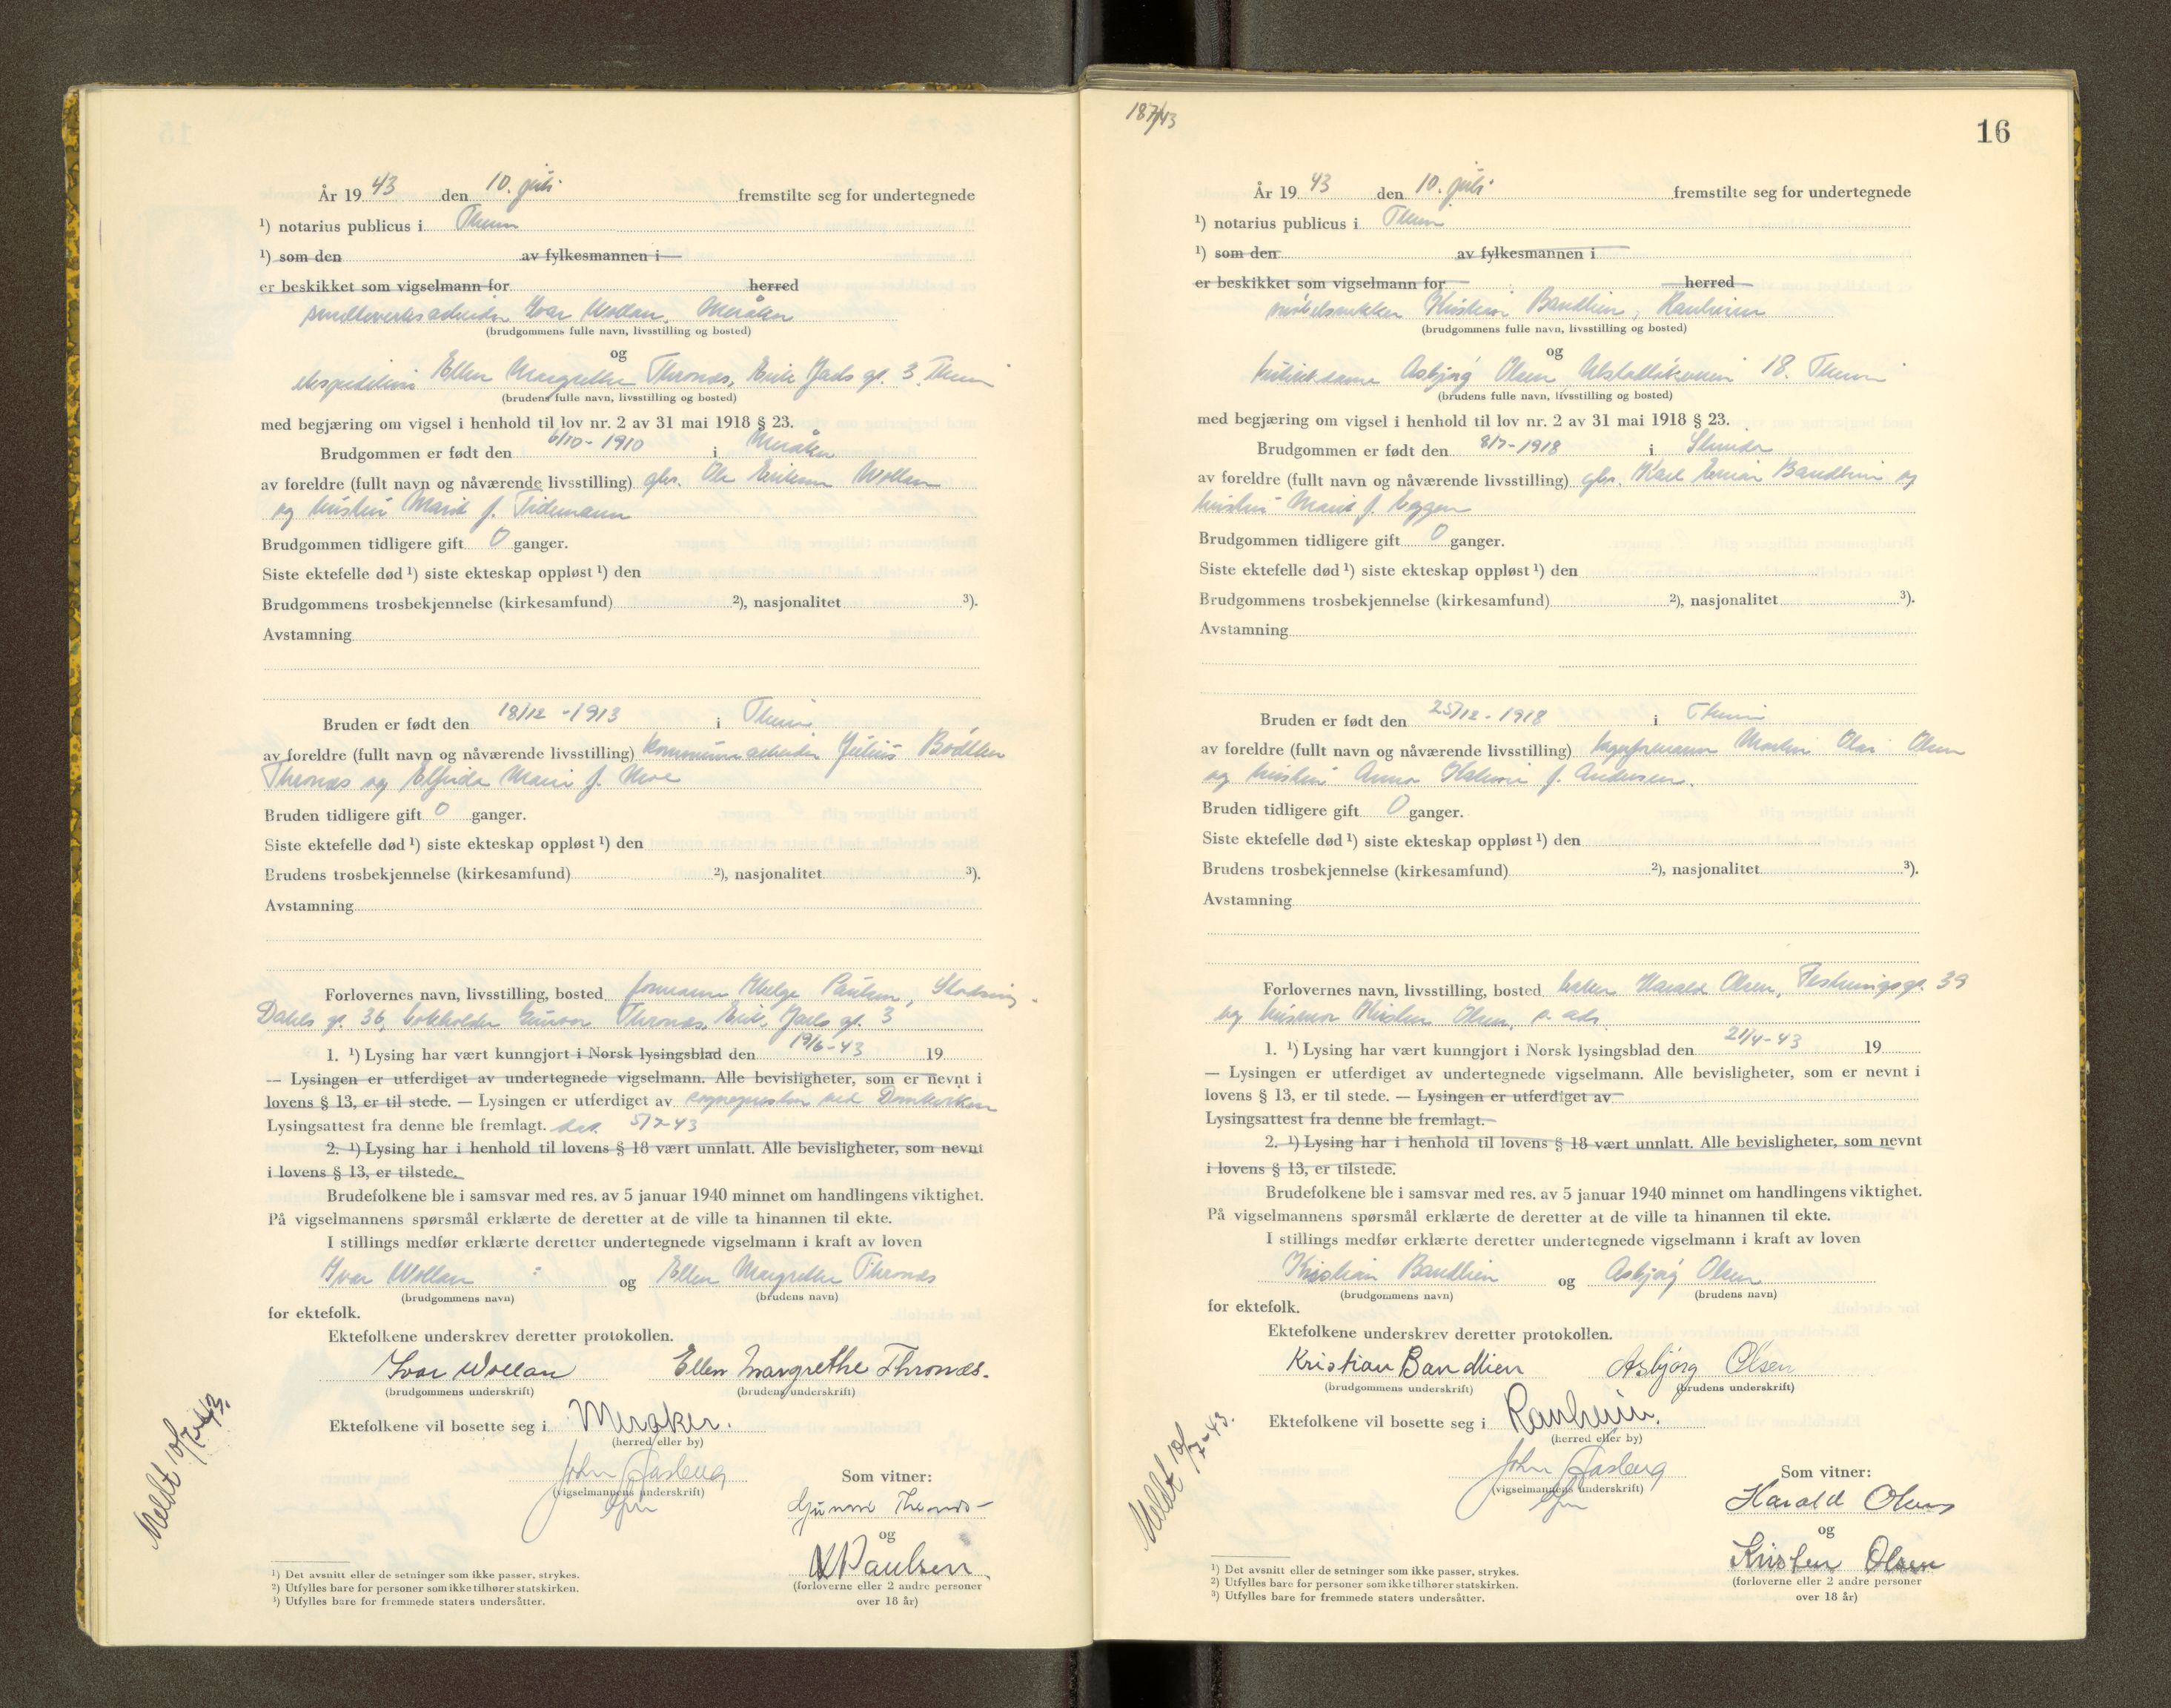 År 19 43 den 10. juli fremstilte seg for undertegnede
¹) notarius publicus i Thein
¹) som den av fylkesmannen i
er beskikket som vigselmann for herred
smelteverksarbeider Ivar Wollan, Meråker
(brudgommens fulle navn, livsstilling og bosted)
og
Ellen Margrethe Thronæs, Erik Jarls gt. 3
(brudens fulle navn, livsstilling og bosted)
med begjæring om vigsel i henhold til lov nr. 2 av 31 mai 1918 § 23.
Brudgommen er født den 6/10 - 1910 i Meråker
av foreldre (fullt navn og nåværende livsstilling) gbr. Ole Eriksen Wollan
og hustru Marit f. Tidemann
Brudgommen tidligere gift 0 ganger.
Siste ektefelle død ¹) siste ekteskap oppløst ¹) den
Brudgommens trosbekjennelse (kirkesamfund) ²), nasjonalitet ³).
Avstamning
Bruden er født den 18/12 - 1913 i
av foreldre (fullt navn og nåværende livsstilling) kommunearbeider Julius Bödtker
Thronæs og Elfrida Marie f. Moe
Bruden tidligere gift 0 ganger.
Siste ektefelle død ¹) siste ekteskap oppløst ¹) den
Brudens trosbekjennelse (kirkesamfund) ²), nasjonalitet ³).
Avstamning
Forlovernes navn, livsstilling, bosted formann Helge Paulsen,
Dahls gt. 36, bokholder Gunnar Thronæs, Erik Jarls gt. 3
1. ¹) Lysing har vært kunngjort i Norsk lysingsblad den 19/6-43 19
— Lysingen er utferdiget av undertegnede vigselmann. Alle bevisligheter, som er nevnt i
lovens § 13, er til stede. — Lysingen er utferdiget av sognepresten ved Domkirken
Lysingsattest fra denne ble fremlagt. dat. 5/7-43
2. ¹) Lysing har i henhold til lovens § 18 vært unnlatt. Alle bevisligheter, som nevnt
i lovens § 13, er tilstede.
Brudefolkene ble i samsvar med res. av 5 januar 1940 minnet om handlingens viktighet.
På vigselmannens spørsmål erklærte de deretter at de ville ta hinannen til ekte.
I stillings medfør erklærte deretter undertegnede vigselmann i kraft av loven
Ivar Wollan og Ellen Margrethe Thronæs
(brudgommens navn) (brudens navn)
for ektefolk.
Ektefolkene underskrev deretter protokollen.
Ivar Wollan Ellen Margrethe Thronæs.
(brudgommens underskrift) (brudens underskrift)
Ektefolkene vil bosette seg i Meråker.
(herred eller by)
John Aasberg
(vigselmannens underskrift)
Som vitner:
Gunnar Thronæs
og
H Paulsen
(forloverne eller 2 andre personer
over 18 år)
Meldt 10/7-43.
¹) Det avsnitt eller de setninger som ikke passer, strykes.
²) Utfylles bare for personer som ikke tilhører statskirken.
¹) Utfylles bare for fremmede staters undersåtter.
187/43
16
År 19 43 den 10. juli fremstilte seg for undertegnede
¹) notarius publicus i
¹) som den av fylkesmannen i
er beskikket som vigselmann for herred
møbelsnekker Kristian Bandlien, Ranheim
(brudgommens fulle navn, livsstilling og bosted)
og
Asbjørg Olsen 18.
(brudens fulle navn, livsstilling og bosted)
med begjæring om vigsel i henhold til lov nr. 2 av 31 mai 1918 § 23.
Brudgommen er født den 8/7-1918 i Strinda
av foreldre (fullt navn og nåværende livsstilling) gbr. Karl Bandlien og
hustru Marit f. Eggen
Brudgommen tidligere gift 0 ganger.
Siste ektefelle død ¹) siste ekteskap oppløst ¹) den
Brudgommens trosbekjennelse (kirkesamfund) ²), nasjonalitet ³).
Avstamning
Bruden er født den 25/12 - 1918 i
av foreldre (fullt navn og nåværende livsstilling) lagerformann Martin Olai Olsen
og hustru Anna f. Andersen.
Bruden tidligere gift 0 ganger.
Siste ektefelle død ¹) siste ekteskap oppløst ¹) den
Brudens trosbekjennelse (kirkesamfund) ²), nasjonalitet ³).
Avstamning
Forlovernes navn, livsstilling, bosted baker Harald Olsen, Festningsgt. 39
og husmor Kirsten Olsen, s. ads.
1. ¹) Lysing har vært kunngjort i Norsk lysingsblad den 21/4-43 19
— Lysingen er utferdiget av undertegnede vigselmann. Alle bevisligheter, som er nevnt i
lovens § 13, er til stede. — Lysingen er utferdiget av
Lysingsattest fra denne ble fremlagt.
2. ¹) Lysing har i henhold til lovens § 18 vært unnlatt. Alle bevisligheter, som nevnt
i lovens § 13, er tilstede.
Brudefolkene ble i samsvar med res. av 5 januar 1940 minnet om handlingens viktighet.
På vigselmannens spørsmål erklærte de deretter at de ville ta hinannen til ekte.
I stillings medfør erklærte deretter undertegnede vigselmann i kraft av loven
Kristian Bandlien og Asbjørg Olsen
(brudgommens navn) (brudens navn)
for ektefolk.
Ektefolkene underskrev deretter protokollen.
Kristian Bandlien Asbjørg Olsen
(brudgommens underskrift) (brudens underskrift)
Ektefolkene vil bosette seg i Ranheim.
(herred eller by)
John Aasberg
(vigselmannens underskrift)
Som vitner:
Harald Olsen
og
Kristen Olsen
(forloverne eller 2 andre personer
over 18 år)
Meldt 10/7-43.
¹) Det avsnitt eller de setninger som ikke passer, strykes.
²) Utfylles bare for personer som ikke tilhører statskirken.
³) Utfylles bare for fremmede staters undersåtter.